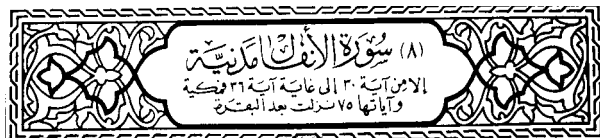 (٨) سُورَةُ الأَنْفَالِ مَدَنِيَّة
إلا من آية ٣٠ إلى غاية آية ٣٦ فمكية
وآياتها ٧٥ نزلت بعد البقرة